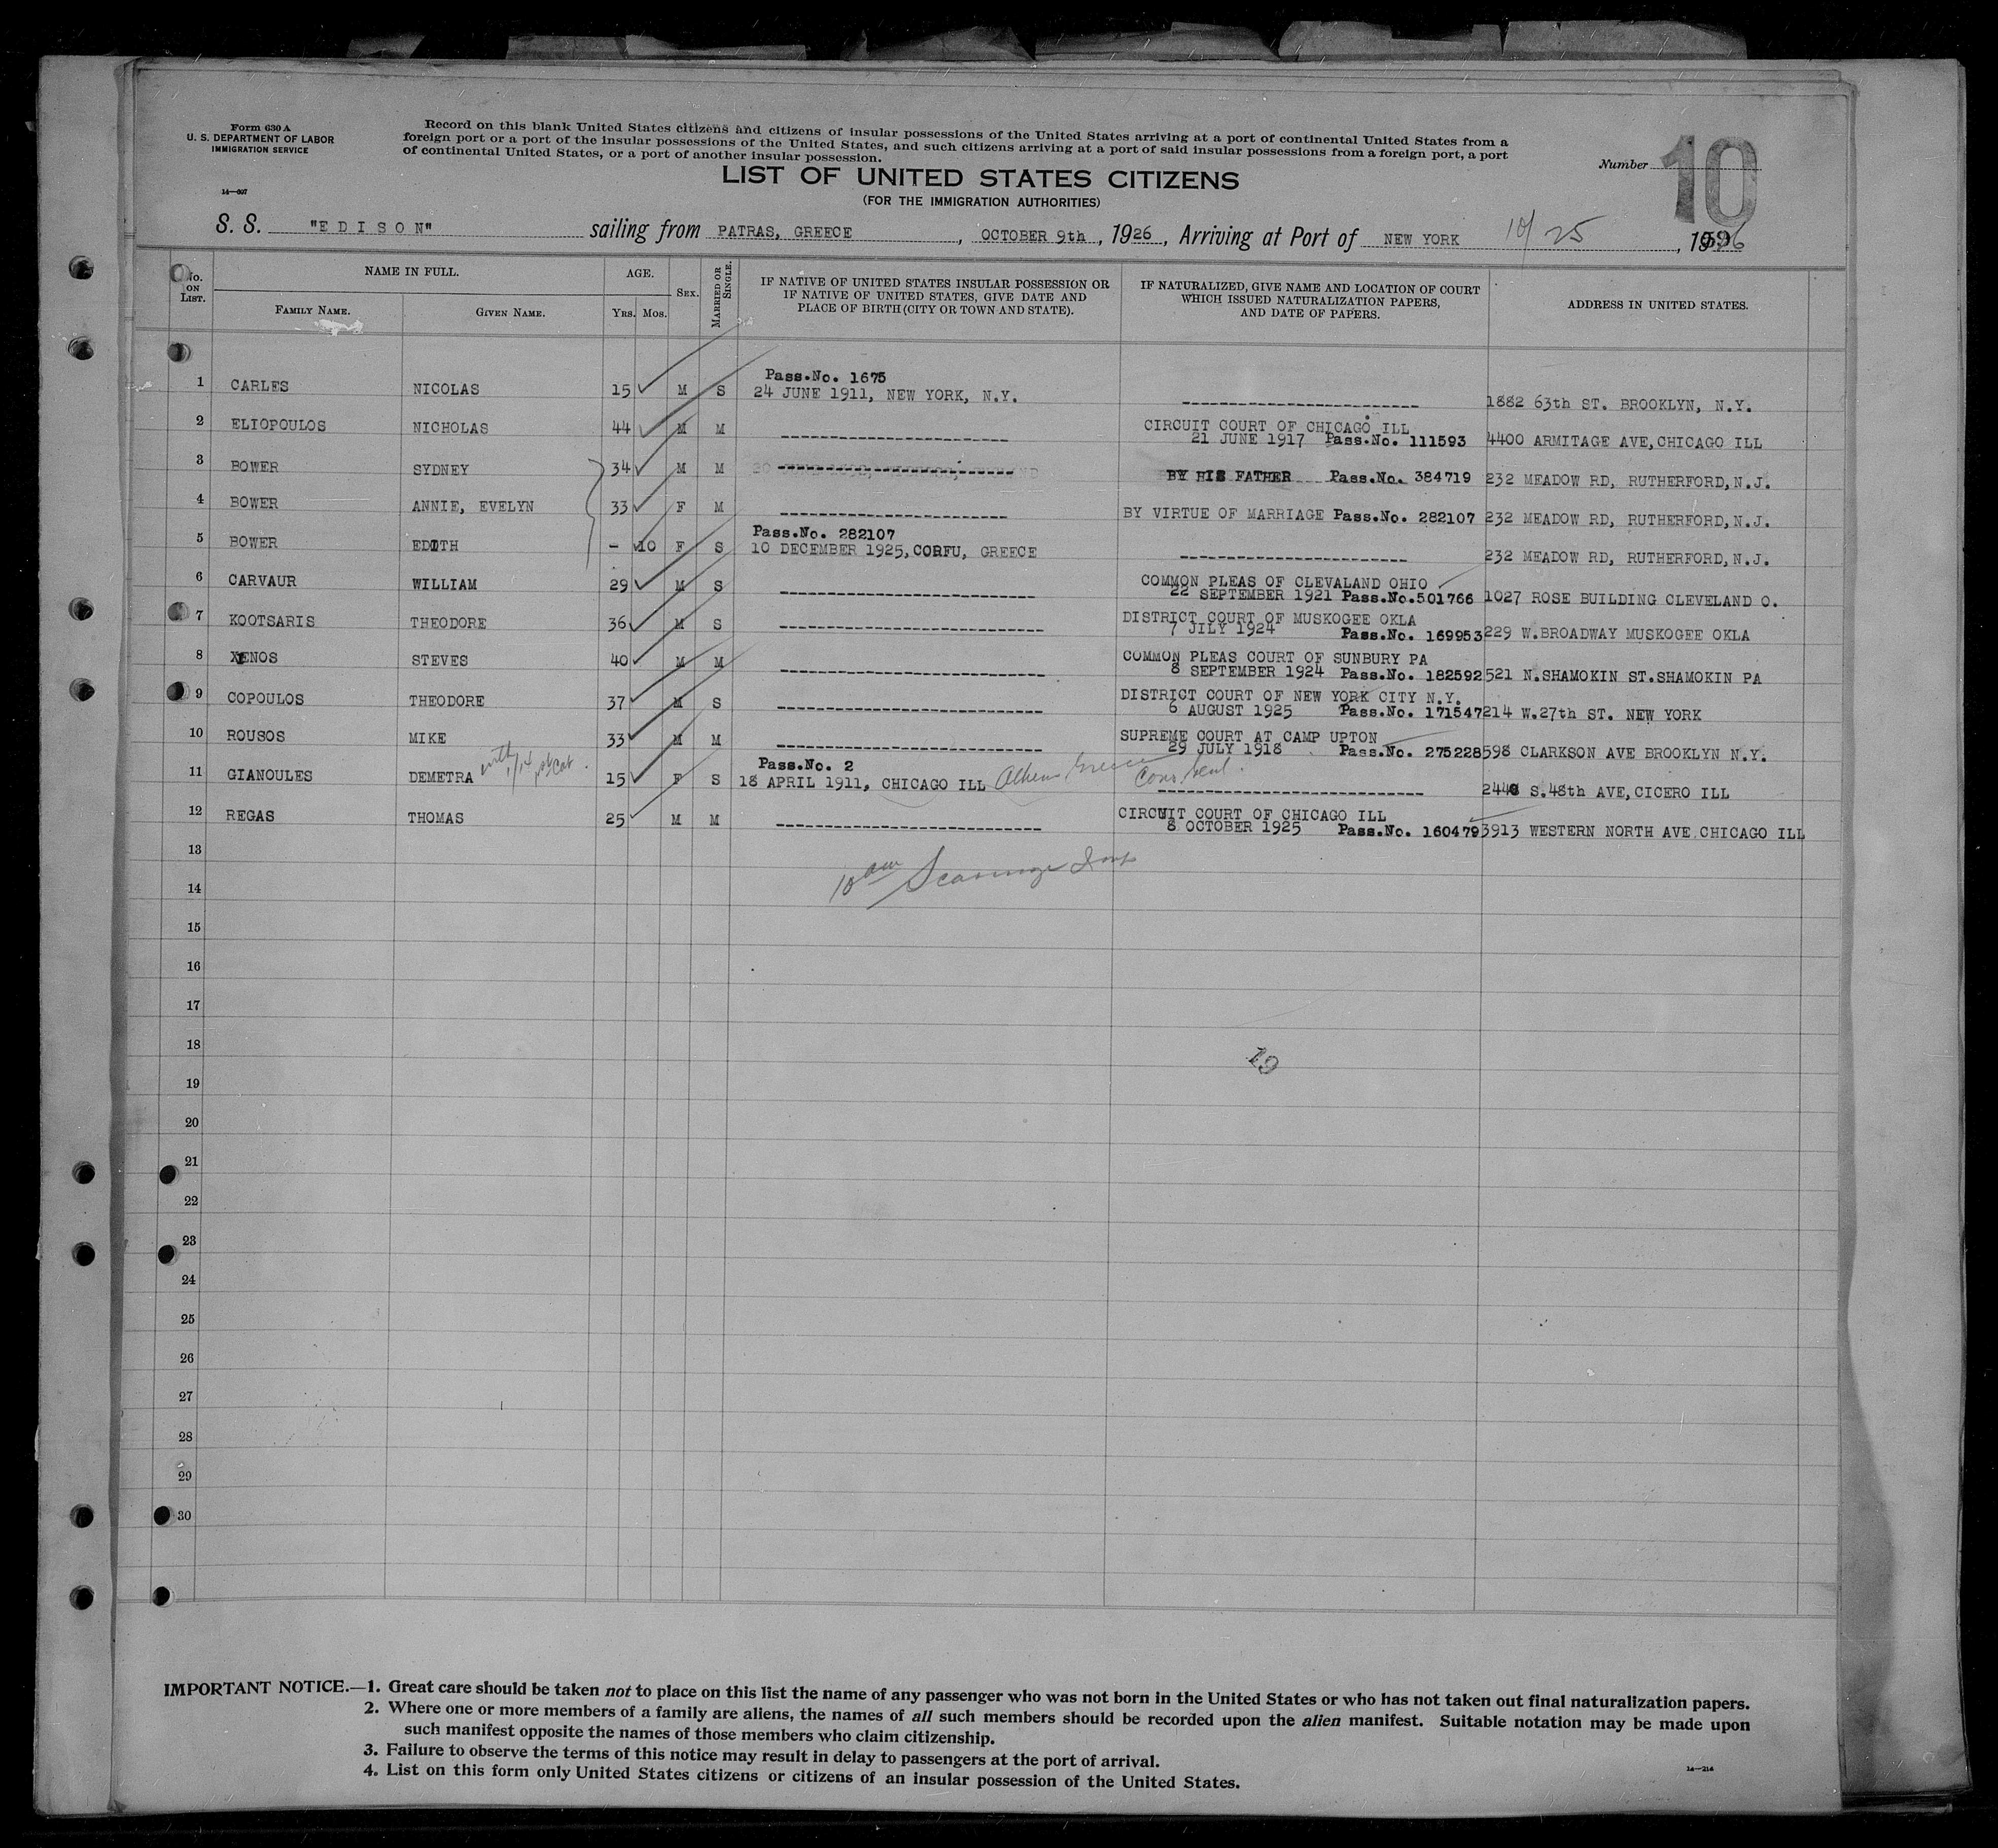 Form 630 A
U. S. DEPARTMENT OF LABOR
IMMIGRATION SERVICE
14—697
Record on this blank United States citizens and citizens of insular possessions of the United States arriving at a port of continental United States from a
foreign port or a port of the insular possessions of the United States, and such citizens arriving at a port of said insular possessions from a foreign port, a port
of continental United States, or a port of another insular possession.
LIST OF UNITED STATES CITIZENS
(FOR THE IMMIGRATION AUTHORITIES)
Number 10
S. S. "EDISON" sailing from PATRAS, GREECE, OCTOBER 9th, 1926, Arriving at Port of NEW YORK 10/25, 1926
No. ON LIST.
NAME IN FULL.
FAMILY NAME. GIVEN NAME.
AGE.
Yrs. Mos.
SEX.
MARRIED OR SINGLE.
IF NATIVE OF UNITED STATES INSULAR POSSESSION OR
IF NATIVE OF UNITED STATES, GIVE DATE AND
PLACE OF BIRTH (CITY OR TOWN AND STATE).
IF NATURALIZED, GIVE NAME AND LOCATION OF COURT
WHICH ISSUED NATURALIZATION PAPERS,
AND DATE OF PAPERS.
ADDRESS IN UNITED STATES.
Pass.No. 1675
1 CARLES NICOLAS 15 M S 24 JUNE 1911, NEW YORK, N.Y. 1882 63th ST. BROOKLYN, N.Y.
2 ELIOPOULOS NICHOLAS 44 M M CIRCUIT COURT OF CHICAGO ILL
21 JUNE 1917 Pass.No. 111593 4400 ARMITAGE AVE, CHICAGO ILL
3 BOWER SYDNEY 34 M M BY HIS FATHER Pass.No. 384719 232 MEADOW RD, RUTHERFORD, N.J.
4 BOWER ANNIE, EVELYN 33 F M BY VIRTUE OF MARRIAGE Pass.No. 282107 232 MEADOW RD, RUTHERFORD, N.J.
Pass.No. 282107
5 BOWER EDITH - 10 F S 10 DECEMBER 1925, CORFU, GREECE 232 MEADOW RD, RUTHERFORD, N.J.
6 CARVAUR WILLIAM 29 M S COMMON PLEAS OF CLEVALAND OHIO
22 SEPTEMBER 1921 Pass.No.501766 1027 ROSE BUILDING CLEVELAND O.
7 KOOTSARIS THEODORE 36 M S DISTRICT COURT OF MUSKOGEE OKLA
7 JILY 1924 Pass.No. 169953 229 W.BROADWAY MUSKOGEE OKLA
8 XENOS STEVES 40 M M COMMON PLEAS COURT OF SUNBURY PA
8 SEPTEMBER 1924 Pass.No. 182592 521 N.SHAMOKIN ST.SHAMOKIN PA
9 COPOULOS THEODORE 37 M S DISTRICT COURT OF NEW YORK CITY N.Y.
6 AUGUST 1925 Pass.No. 171547 214 W.27th ST. NEW YORK
10 ROUSOS MIKE 33 M M SUPREME COURT AT CAMP UPTON
29 JULY 1918 Pass.No. 275228 598 CLARKSON AVE BROOKLYN N.Y.
Pass.No. 2
11 GIANOULES DEMETRA with 1/14 1st Cab. 15 F S 18 APRIL 1911, CHICAGO ILL Athens Greece S. 48th AVE, CICERO ILL
12 REGAS THOMAS 25 M M CIRCUIT COURT OF CHICAGO ILL
8 OCTOBER 1925 Pass.No. 160479 3913 WESTERN NORTH AVE CHICAGO ILL
13
14
15
16
17
18
19
19
20
21
22
23
24
25
26
27
28
29
30
IMPORTANT NOTICE.—1. Great care should be taken not to place on this list the name of any passenger who was not born in the United States or who has not taken out final naturalization papers.
2. Where one or more members of a family are aliens, the names of all such members should be recorded upon the alien manifest. Suitable notation may be made upon
such manifest opposite the names of those members who claim citizenship.
3. Failure to observe the terms of this notice may result in delay to passengers at the port of arrival.
4. List on this form only United States citizens or citizens of an insular possession of the United States.
14—214